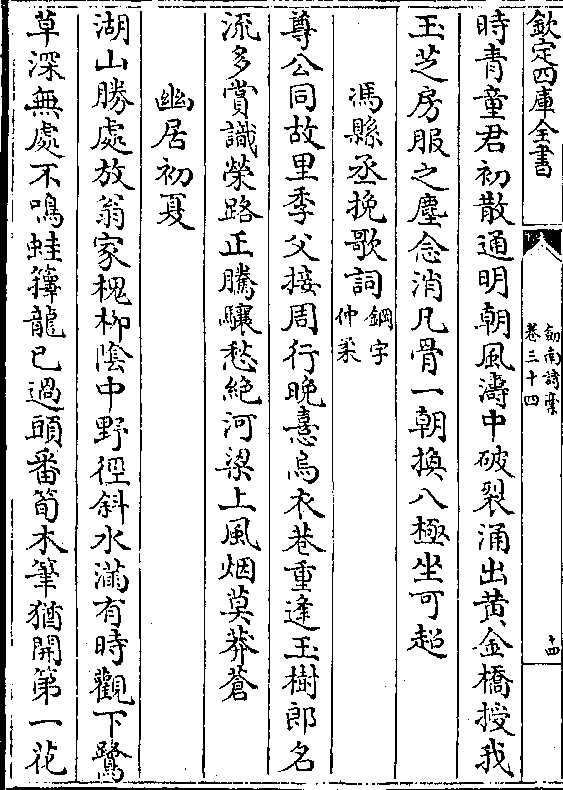 欽定四庫全書
劒南詩稾
卷三十四
十四
時青童君初散通明朝風濤中破裂涌出黄金橋授我
玉芝房服之塵念消凡骨一朝換八極坐可超
馮縣丞挽歌詞
鋼字
仲柔
尊公同故里季父接周行晩憙烏衣巷重逢玉樹郎名
流多賞識榮路正騰驤愁絶河梁上風烟莫莽蒼
幽居初夏
湖山勝處放翁家槐栁陰中野徑斜水滿有時觀下鷺
草深無處不鳴蛙籜龍已過頭番筍木筆猶開第一花